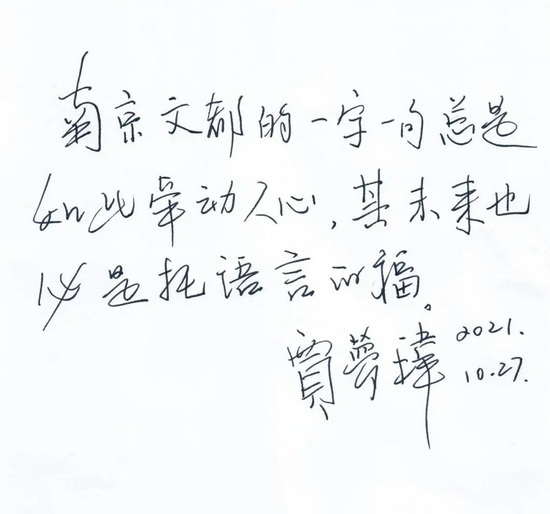 南京文都的一字一句总是
如此牵动人心，其未来也
必是托语言的福。
賈梦瑋 2021.
10.27.